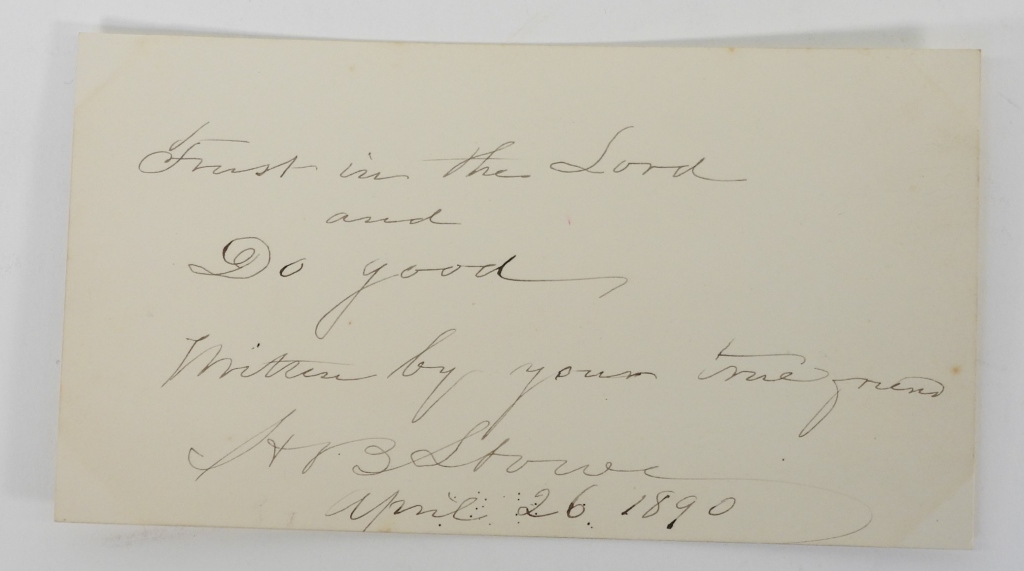 Trust in the Lord
and
Do good,
Written by your true friend
H B Stowe
April 26 1890